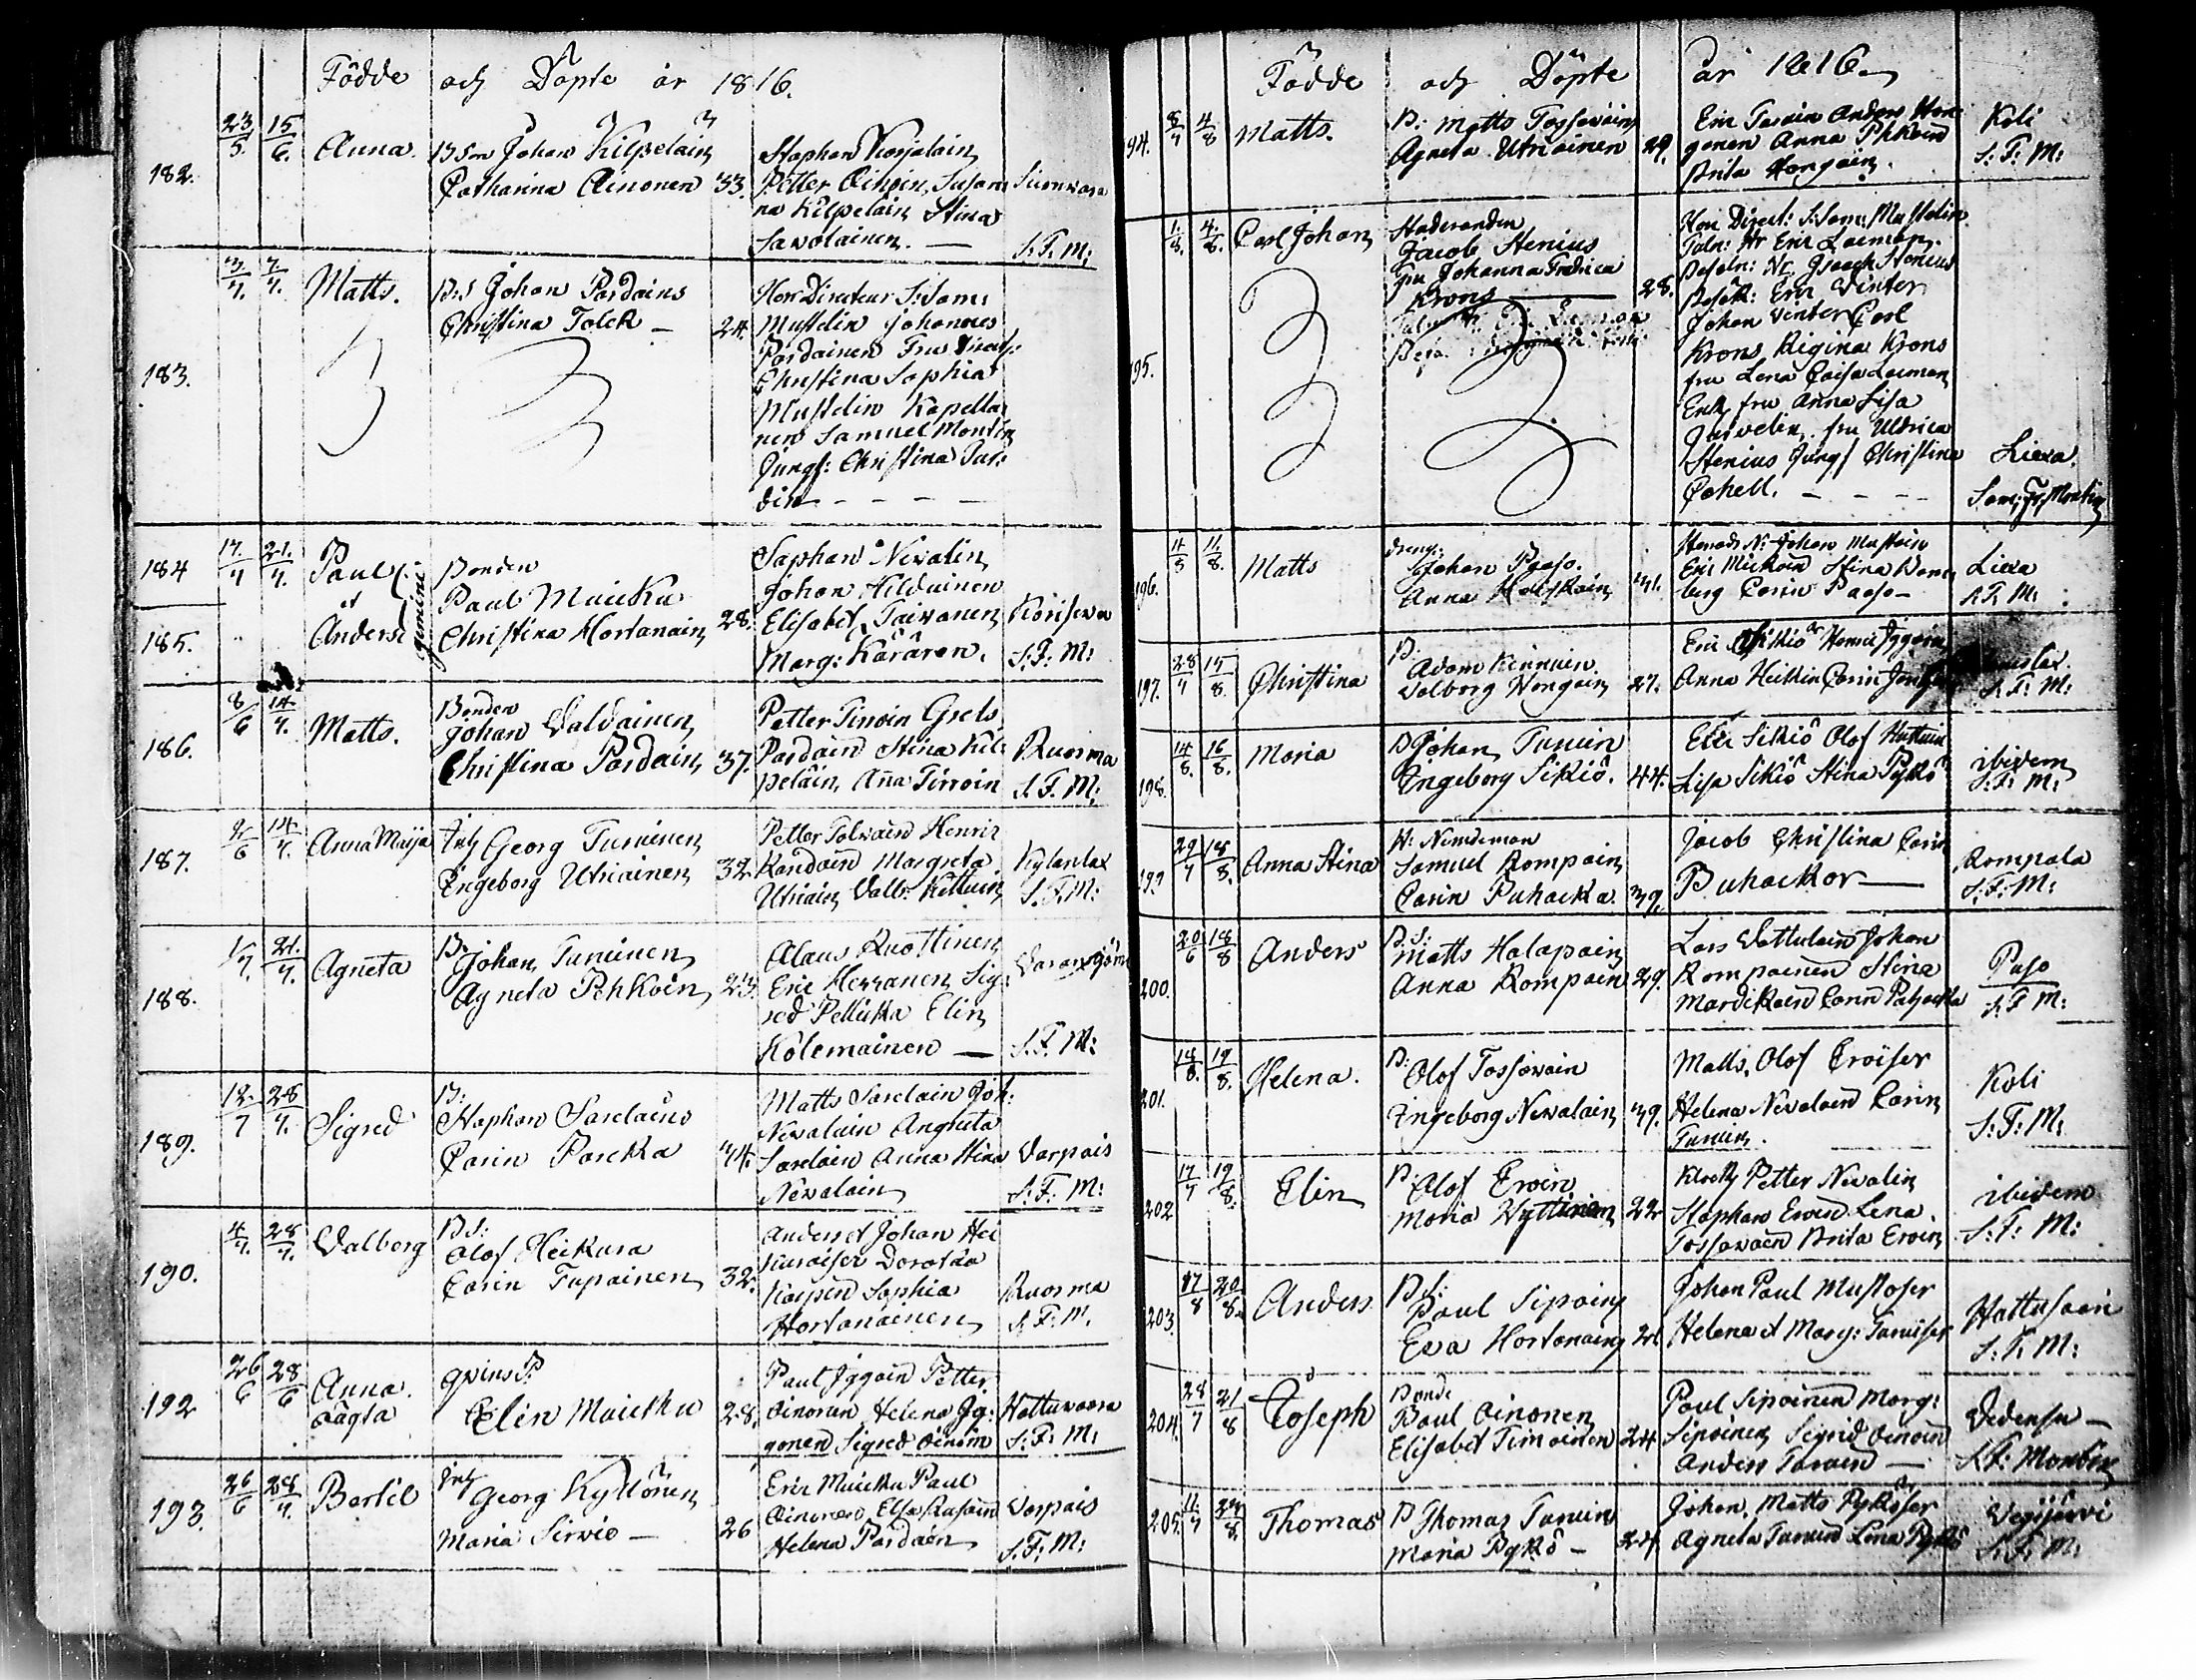 Födde och Döpte år 1816.
182. 23/5. 15/6. Anna.
BSon Johan Kilpelain
Catharina Oinonen 33.
Staphan Korjalain
Petter Oinoin, Susan
na Kilpelain Stina
Sawolainen. —
S. F. M:
183. 3/7. 7/7. Matts.
B:S Johan Pardains
Christina Tolck — 24.
Herr Directeur S: Sam:
Mustelin Johannes
Pardainen Frus
Christina Sophia
Mustelin Kapella
nen Samuel Montin
Jungf: Christina Tur:
din - - - -
184 17/7 21/7. Paul
et
185. Anders
gemini
Bonden
Paul Muicku
Christina Hortanain 28.
Saphan Newalin
Johan Hilduinen
Elisabet Taiwanen
Marg: Kärären.
Korisewa
S: F: M:
186. 8/6 14/7. Matts.
Bonden
Johan Waldainen
Christina Pardain 37.
Petter Tirroin Grels
Pardain Stina Kil
peläin, Anna Tirroin
Ruosma
S. F. M:
187. 9/6 14/7. Anna Maija
Inh Georg Turuinen
Ingeborg Utriainen 32.
Petter Tolwain Henric
Kärdain Margreta
Utriain Valb: Kettuin
Kylanlax
S. F. M:
188. 1/7. 21/7. Agneta
B: Johan Turuinen
Agneta Pehkoin 23.
Olaus Ruottinen
Eric Herranen Sig
red Pellicka Elin
Kolemainen —
S. F. M:
189. 12/7 28/7. Sigred
B:
Staphan Sarelains
Carin Parckka 34.
Matts Sarelain Joh:
Newalain Angneta
Sarelain Anna Stina
Newalain
Warpais
S: F: M:
190. 4/7. 28/7. Walborg
B S:
Olof Heikura
Carin Tupainen 32.
Anders et Johan Hei
kuraiser Dorotha
Karpin Sophia
Hortanainen
Ruosma
S. F. M.
192 26/6 28/6 Anna.
oägta
Elin Muicku 28.
Paul Iggoin Petter
Oinonen Helena Ig:
gonen Sigred Oinoin
Hattuwaara
S: F: M:
193. 26/6 28/7. Bertil
Inh Georg Kyttönen
Maria Sirviö — 26
Eric Muicku Paul
Oinonen Elsa Rusain
Helena Pardaen
Warpais
S. F: M:
Födde och Döpte år 1816.
94. 8/7 4/8 Matts.
B: Matts Tossavain
Agneta Utriainen 29.
Eric Turuin Anders Hon
gonen Anna Pehkoin
Brita Hongain.
Koli
S: F: M:
95. 1/8. 4/8. Carl Johan
Jacob Stenius
Fru Johanna Fredrica
Krons — 28.
Herr Direct: S: Sam: Mustelin
Faln: Hr Eric Laiman.
Befaln: Hr. Isaach Stenius
Besök: Eric Winter
Johan Winter Carl
Krons, Regina Krons
fru Lena Caisa Laiman
Enk fru Anna Lisa
fru Ulrica
Stenius Jungf Christina
Cahell. — - -
Liexa.
Sam: Fr: Montin
96. 4/5 11/8. Matts
dreng:
Johan Paaso.
Anna 31.
Johan Mustoin
Eric Mickoin Stina
berg Carin Paaso —
Liexa
S. F. M:
197. 28/7 15/8. Christina
B.
Adam Kinnuien
Valborg Hongain 27.
Eric Sikiö Henric Iggoin
Anna Heickin Carin
S. F: M:
198. 14/8. 16/8. Maria
B Johan Turuin
Ingeborg Sikiö. 44.
Eric Sikiö Olof
Lisa Sikiö Stina Pykö
ibidem
S: F: M:
199 29/7 18/8. Anna Stina
N: Nimdeman
Samuel Rompain
Carin Puhacka 39.
Jacob Christina Carin
Puhackor —
Rompala
S: F: M:
200. 20/6 18/8 Anders
B. S:
Matts Halapain
Anna Rompain 29.
Lars Wattulain Johan
Rompainen Stina
Mardikain Carin Puhacka
Paso
S: F M:
201. 18/8. 19/8. Helena.
B: Olof Tossavain
Ingeborg Newalain 39.
Matts, Olof Eroiser
Helena Newalain Carin
Turuin.
Koli
S: F: M:
202 17/7 19/8. Elin
B: Olof Eroin
Maria Hyttinen 22
Klock Petter Newalin
Staphan Eroin Lena
Tossavaen Brita Eroin
ibidem
S: F: M:
203. 17/8 20/8. Anders
B S:
Paul Sipoin
Eva Hortanain 21.
Johan Paul Mustoser
Helena et Marg: Turuiser
Hattusaari
S: F: M:
204. 28/7 21/8 Joseph
Bonde
Paul Oinonen
Elisabet Timoinen 24
Paul Sipoinen Marg:
Sipoinen Sigrid Oinoin
Anders Turuen —
S: F: Montin
205. 11/7 24/8. Thomas
B Thomas Turuin
Maria Pykö — 24.
Johan, Matts Pyköser
Agneta Turuin Lena Pykö
Wegijärvi
S. F: M: